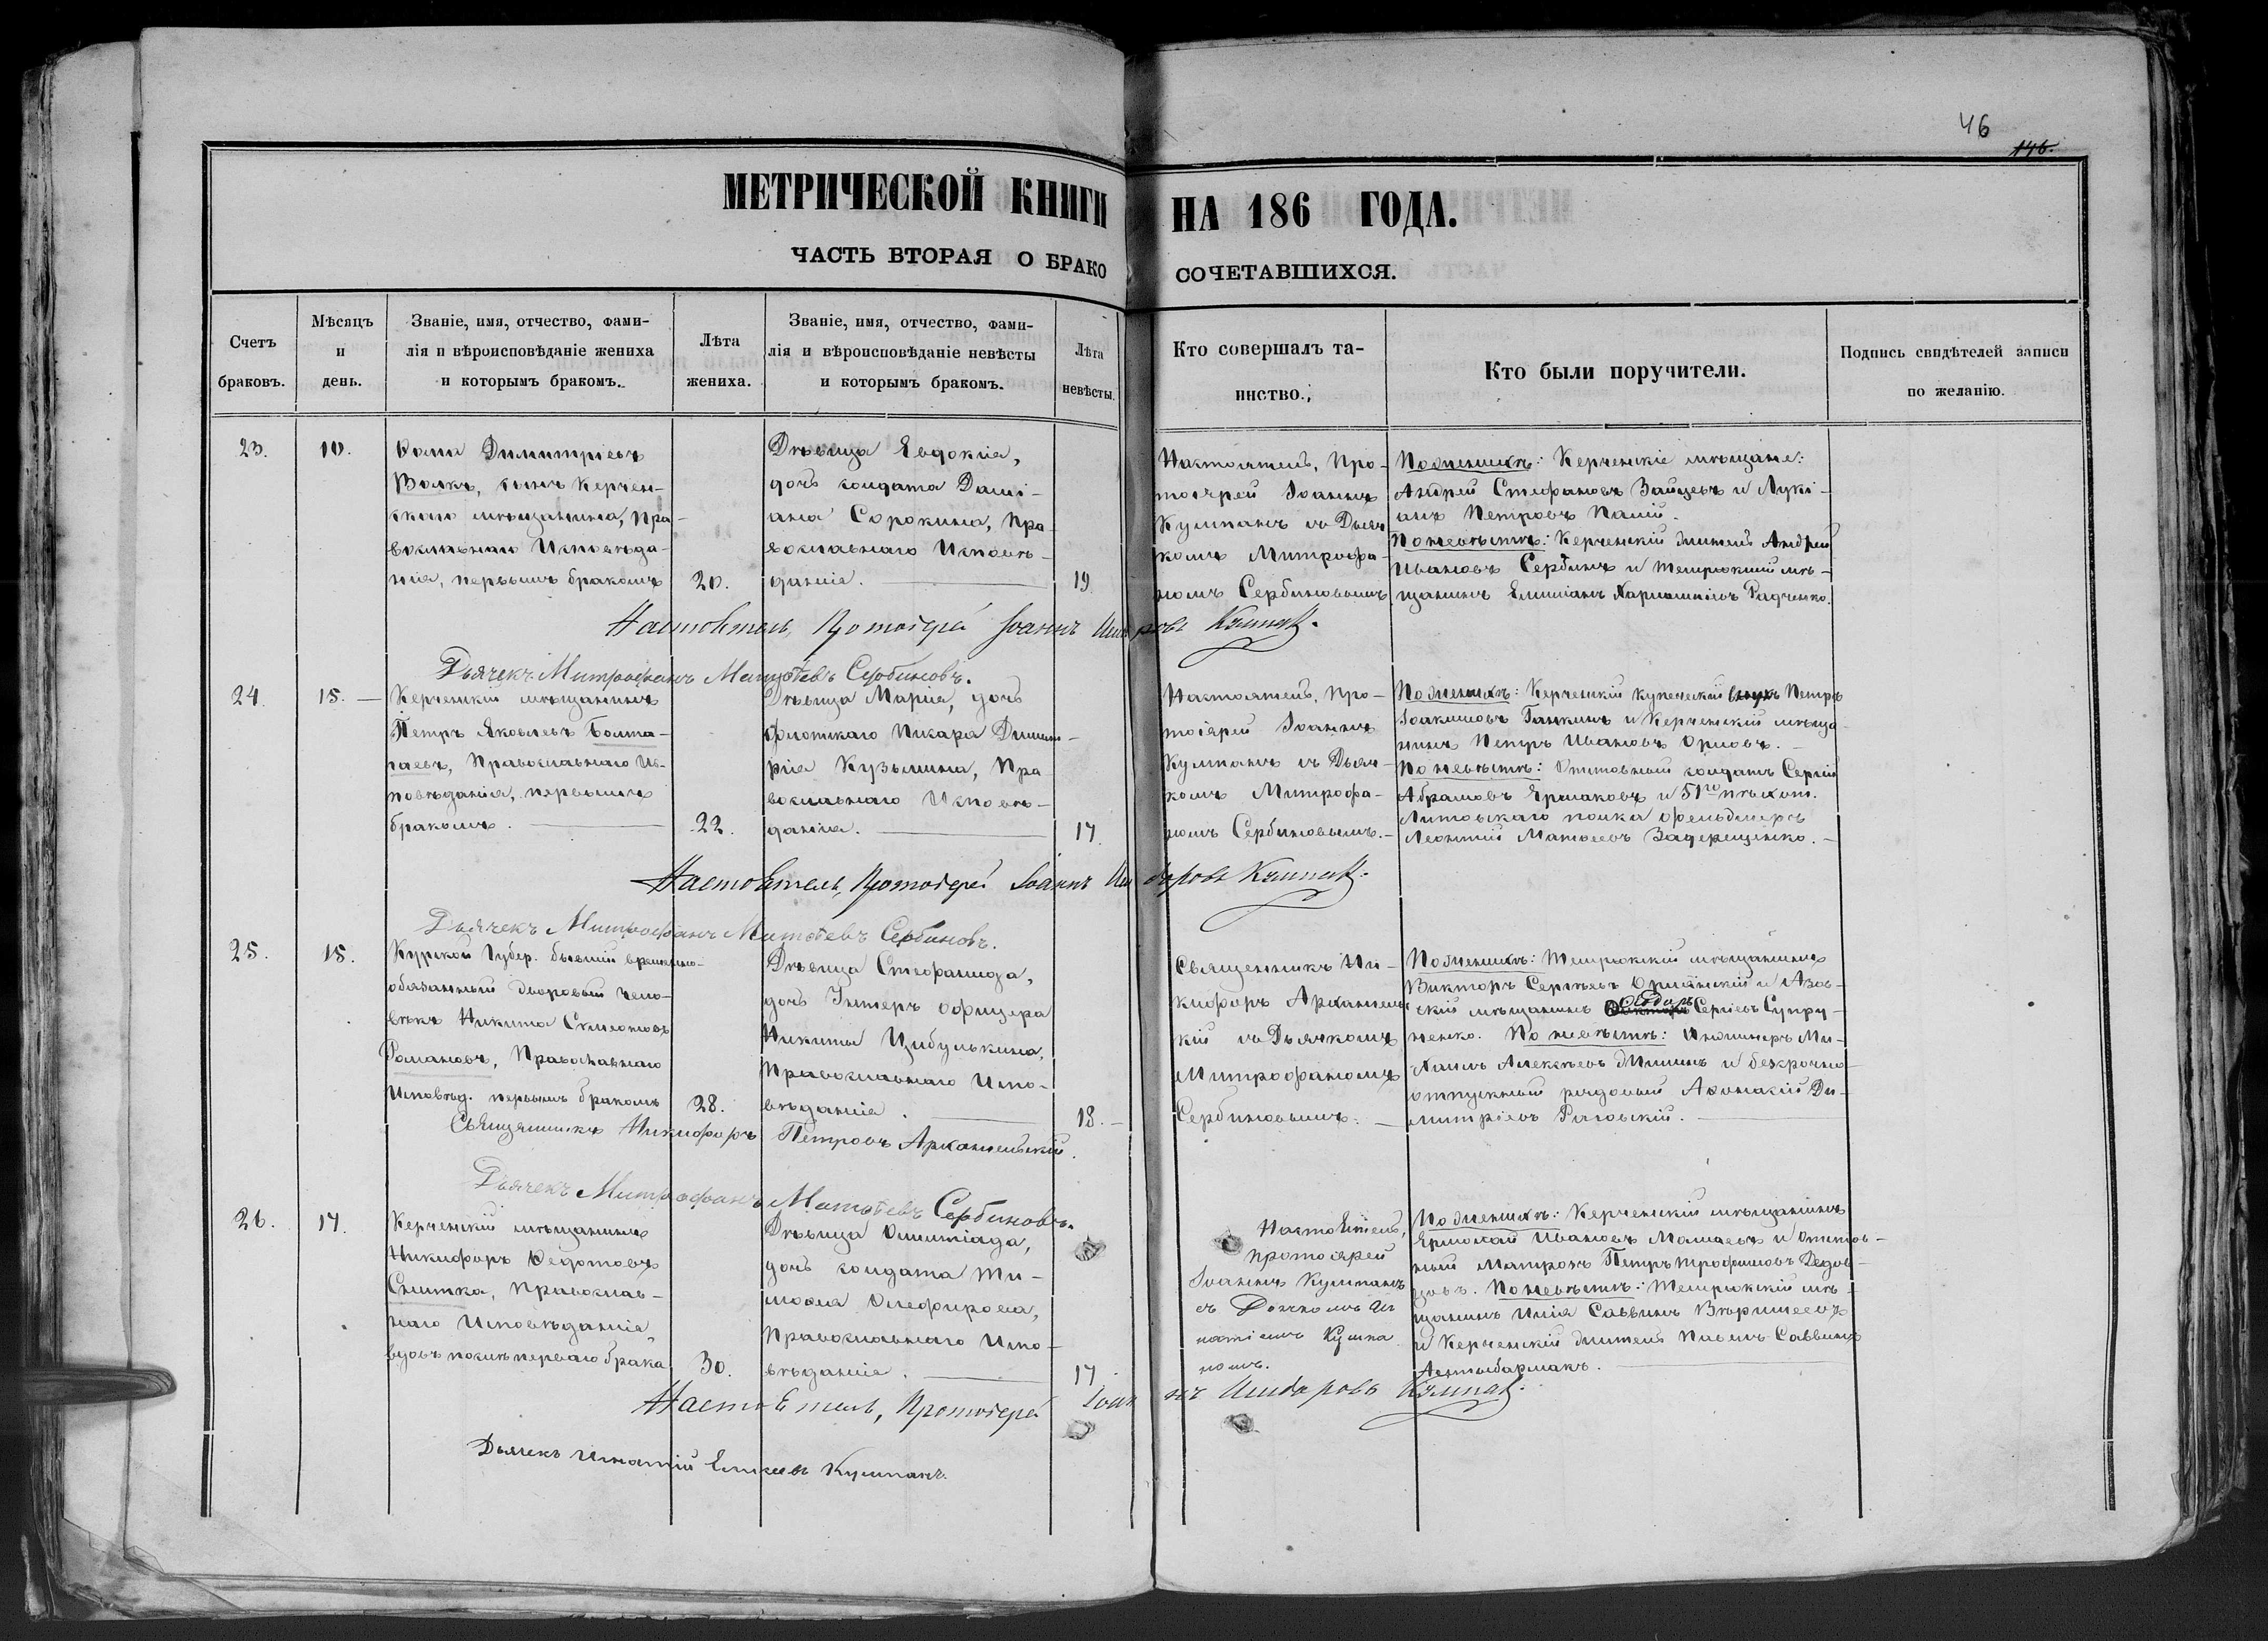 46
146.
МЕТРИЧЕСКОЙ КНИГИ НА 186 ГОДА.
ЧАСТЬ ВТОРАЯ О БРАКОСОЧЕТАВШИХСЯ.
Счетъ браковъ.
Мѣсяцъ и день.
Званіе, имя, отчество, фами-
лія и вѣроисповѣданіе жениха
и которымъ бракомъ.
Лѣта жениха.
Званіе, имя, отчество, фами-
лія и вѣроисповѣданіе невѣсты
и которымъ бракомъ.
Лѣта невѣсты.
Кто совершалъ та-
инство.
Кто были поручители.
Подпись свидѣтелей записи
по желанію.
23.
10.
Ѳома Димитріевъ
Волкъ, сынъ Керчен-
скаго мѣщанина, Пра-
вославнаго Исповѣда-
нія, первымъ бракомъ
20.
Дѣвица Евдокія,
дочь солдата Дамі-
ана Сорокина, Пра-
вославнаго Исповѣ-
данія.
19.
Настоятель, Про-
тоіерей Іоаннъ
Кулпанъ съ Дьяч
комъ Митрофа-
номъ Сербиновымъ
По женихѣ: Керченскіе мѣщане:
Андрей Стефановъ Зайцевъ и Лукі-
анъ Петровъ Палій.
По невѣстѣ: Керченскій житель Андрей
Ивановъ Сербинъ и Темрюкскій мѣ-
щанинъ Емиліанъ Радченко.
Настоятель, Протоіерей Іоаннъ Кулпанъ.
Дьячекъ Митрофанъ Матѳѣевъ Сербиновъ.
24.
15.
Керченскій мѣщанинъ
Петръ Яковлевъ Болта-
Православнаго Ис-
повѣданія, первымъ
бракомъ.
22.
Дѣвица Марія, дочь
флотскаго Писаря Димит-
рія Кузьмина, Пра
вославнаго Исповѣ-
данія.
17.
Настоятель, Про-
тоіерей Іоаннъ
Кулпанъ съ Дьяч-
комъ Митрофа-
номъ Сербиновымъ.
По женихѣ: Керченскій купеческій внукъ Петръ
Іоакимовъ Ганкинъ и Керченскій мѣща-
нинъ Петръ Ивановъ Орловъ.
По невѣстѣ: Отставный солдатъ Сергій
Абрамовъ Ермаковъ и 51го пѣхот.
Литовскаго полка фельдшеръ
Леонтій Матѳеевъ Задерещенко.
Настоятель, Протоіерей Іоаннъ Кулпанъ.
Дьячекъ Митрофанъ Матѳѣевъ Сербиновъ.
25.
15.
Курской Губер. бывшій временно-
обязанный дворовый чело-
вѣкъ Никита Симеоновъ
Романовъ, Православнаго
Исповѣд. первымъ бракомъ
28.
Дѣвица Стефанида,
дочь Унтеръ офицера
Никиты Цибулькина,
Православнаго Испо-
вѣданія.
18.
Священникъ Ни-
кифоръ Архангель-
скій съ Дьячкомъ
Митрофаномъ
Сербиновымъ.
По женихѣ: Темрюкскій мѣщанинъ
Викторъ Сергѣевъ и Азов-
скій мѣщанинъ Ѳедоръ Сергіевъ Супру-
ненко. По невѣстѣ: Инженеръ Ми-
хаилъ Алексѣевъ и безсрочно-
отпускный рядовый Аѳонасій Ди-
митріевъ
Священникъ Никифоръ Петровъ Архангельскій.
Дьячекъ Митрофанъ Матѳѣевъ Сербиновъ.
26.
17.
Керченскій мѣщанинъ
Никифоръ Ѳедотовъ
Смитка, Православ-
наго Исповѣданія,
вдовъ послѣ перваго брака
30.
Дѣвица Олимпіада,
дочь солдата Ти-
моѳея Олефирова,
Православнаго Испо-
вѣданія.
17.
Настоятель,
Протоіерей
Іоаннъ Кулпанъ
съ Дьячкомъ Иг
натіемъ Кулпа
номъ.
По женихѣ: Керченскій мѣщанинъ
Ермолай Ивановъ Мамаевъ и отстав-
ный Матросъ Петръ Трофимовъ
По невѣстѣ: Темрюкскій мѣ-
щанинъ Илія Саввинъ
и Керченскій житель Павелъ Саввинъ
Настоятель, Протоіерей Іоаннъ Кулпанъ.
Дьячекъ Игнатій Елисеевъ Кулпанъ.